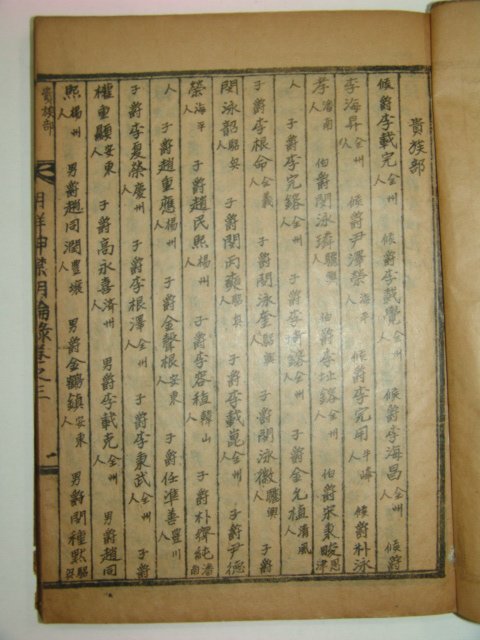 貴族部
侯爵李載完全州人 侯爵李載覺全州人 侯爵李海昌全州人 侯爵
李海昇全州人 侯爵尹澤榮海平人 侯爵李完用牛峰人 侯爵朴泳
孝潘南人 伯爵閔泳璘驪興人 伯爵李址鎔全州人 伯爵宋秉畯恩津
人 子爵李完鎔全州人 子爵李埼鎔全州人 子爵金允植清風人
子爵李根命全義人 子爵閔泳奎驪興人 子爵閔泳徽驪興人 子爵
閔泳韶驪興人 子爵閔丙奭驪興人 子爵李載崑全州人 子爵尹德
榮海平人 子爵趙民熙楊州人 子爵李容稙韓山人 子爵朴齊純潘南
人 子爵趙重應楊州人 子爵金聲根安東人 子爵任準善豊川人
子爵李夏榮慶州人 子爵李根澤全州人 子爵李秉武全州人 子爵
權重顯安東人 子爵高永喜濟州人 男爵李載克全州人 男爵趙同
熙楊州人 男爵趙同潤豊壤人 男爵金鶴鎮安東人 男爵閔種默驪興
貴族部 明倫錄卷之三 一